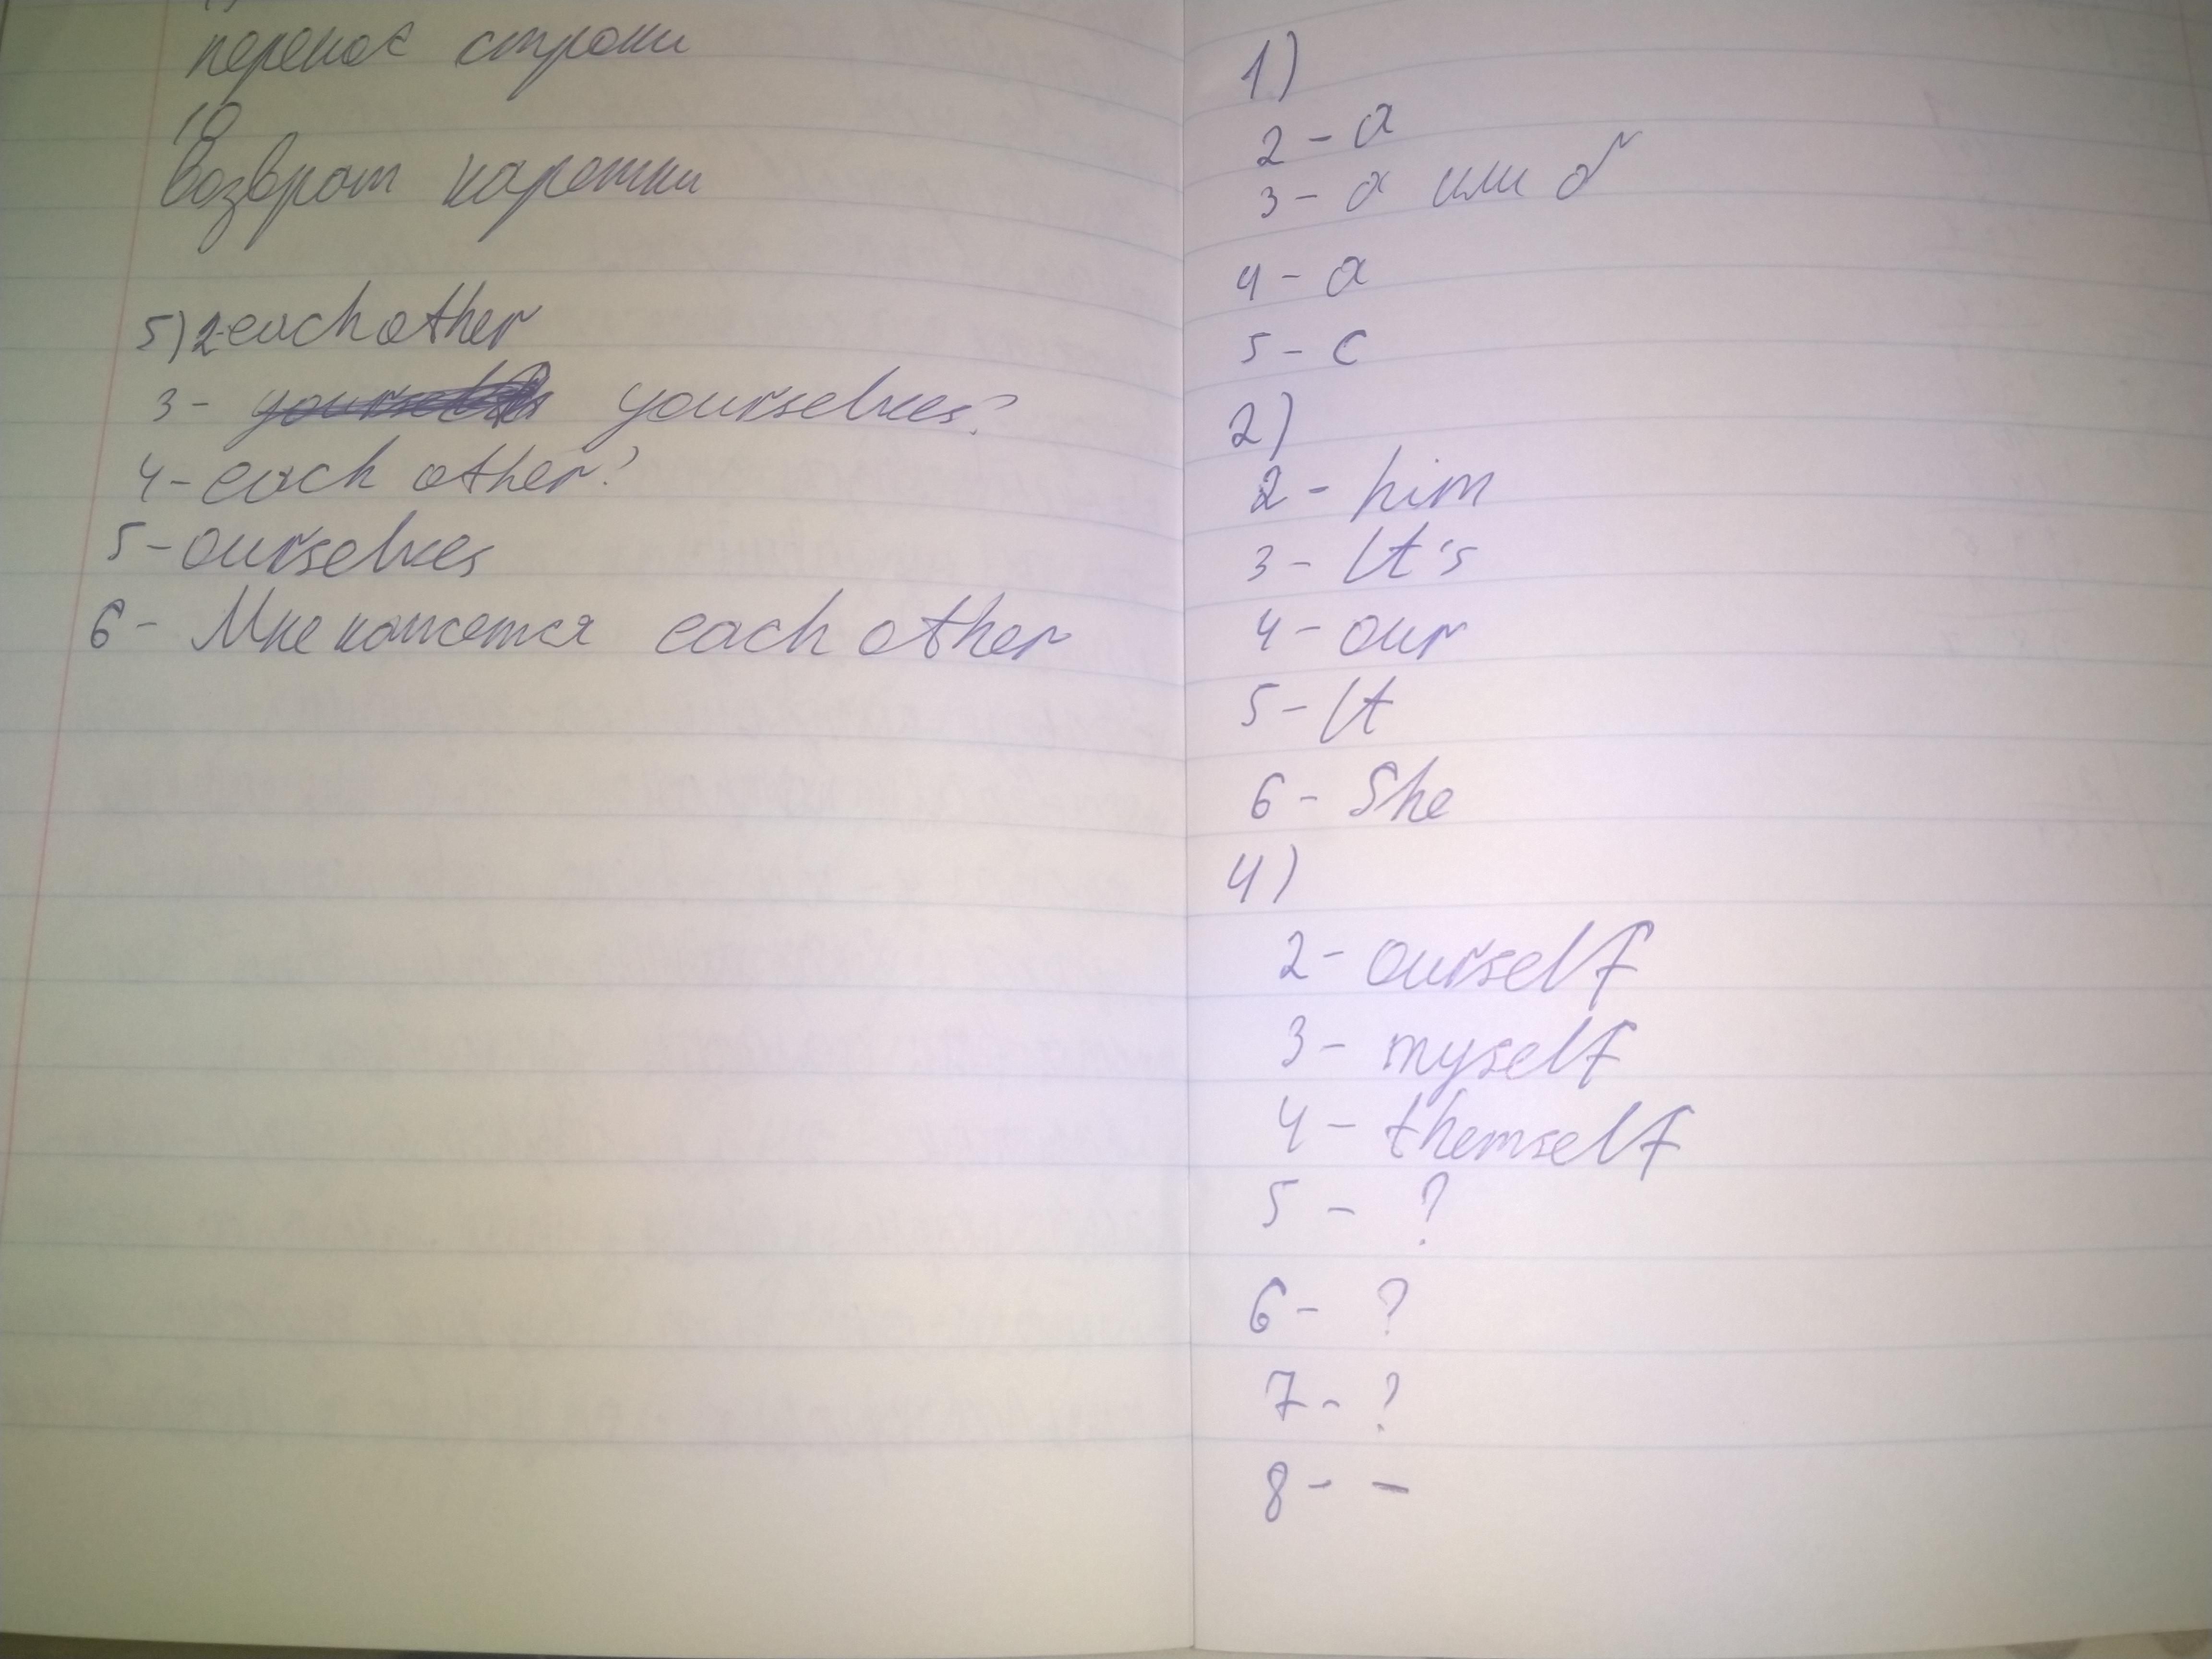 перенос строки
10
Возврат каретки
5) 2-each other
3- yourselves?
4- each other?
5- ourselves
6- Мне кажется each other
1)
2 - a
3 - a или б
4 - a
5 - c
2)
2 - him
3 - It's
4 - our
5 - It
6 - She
4)
2 - ourself
3 - myself
4 - themself
5 - ?
6 - ?
7 - ?
8 - -